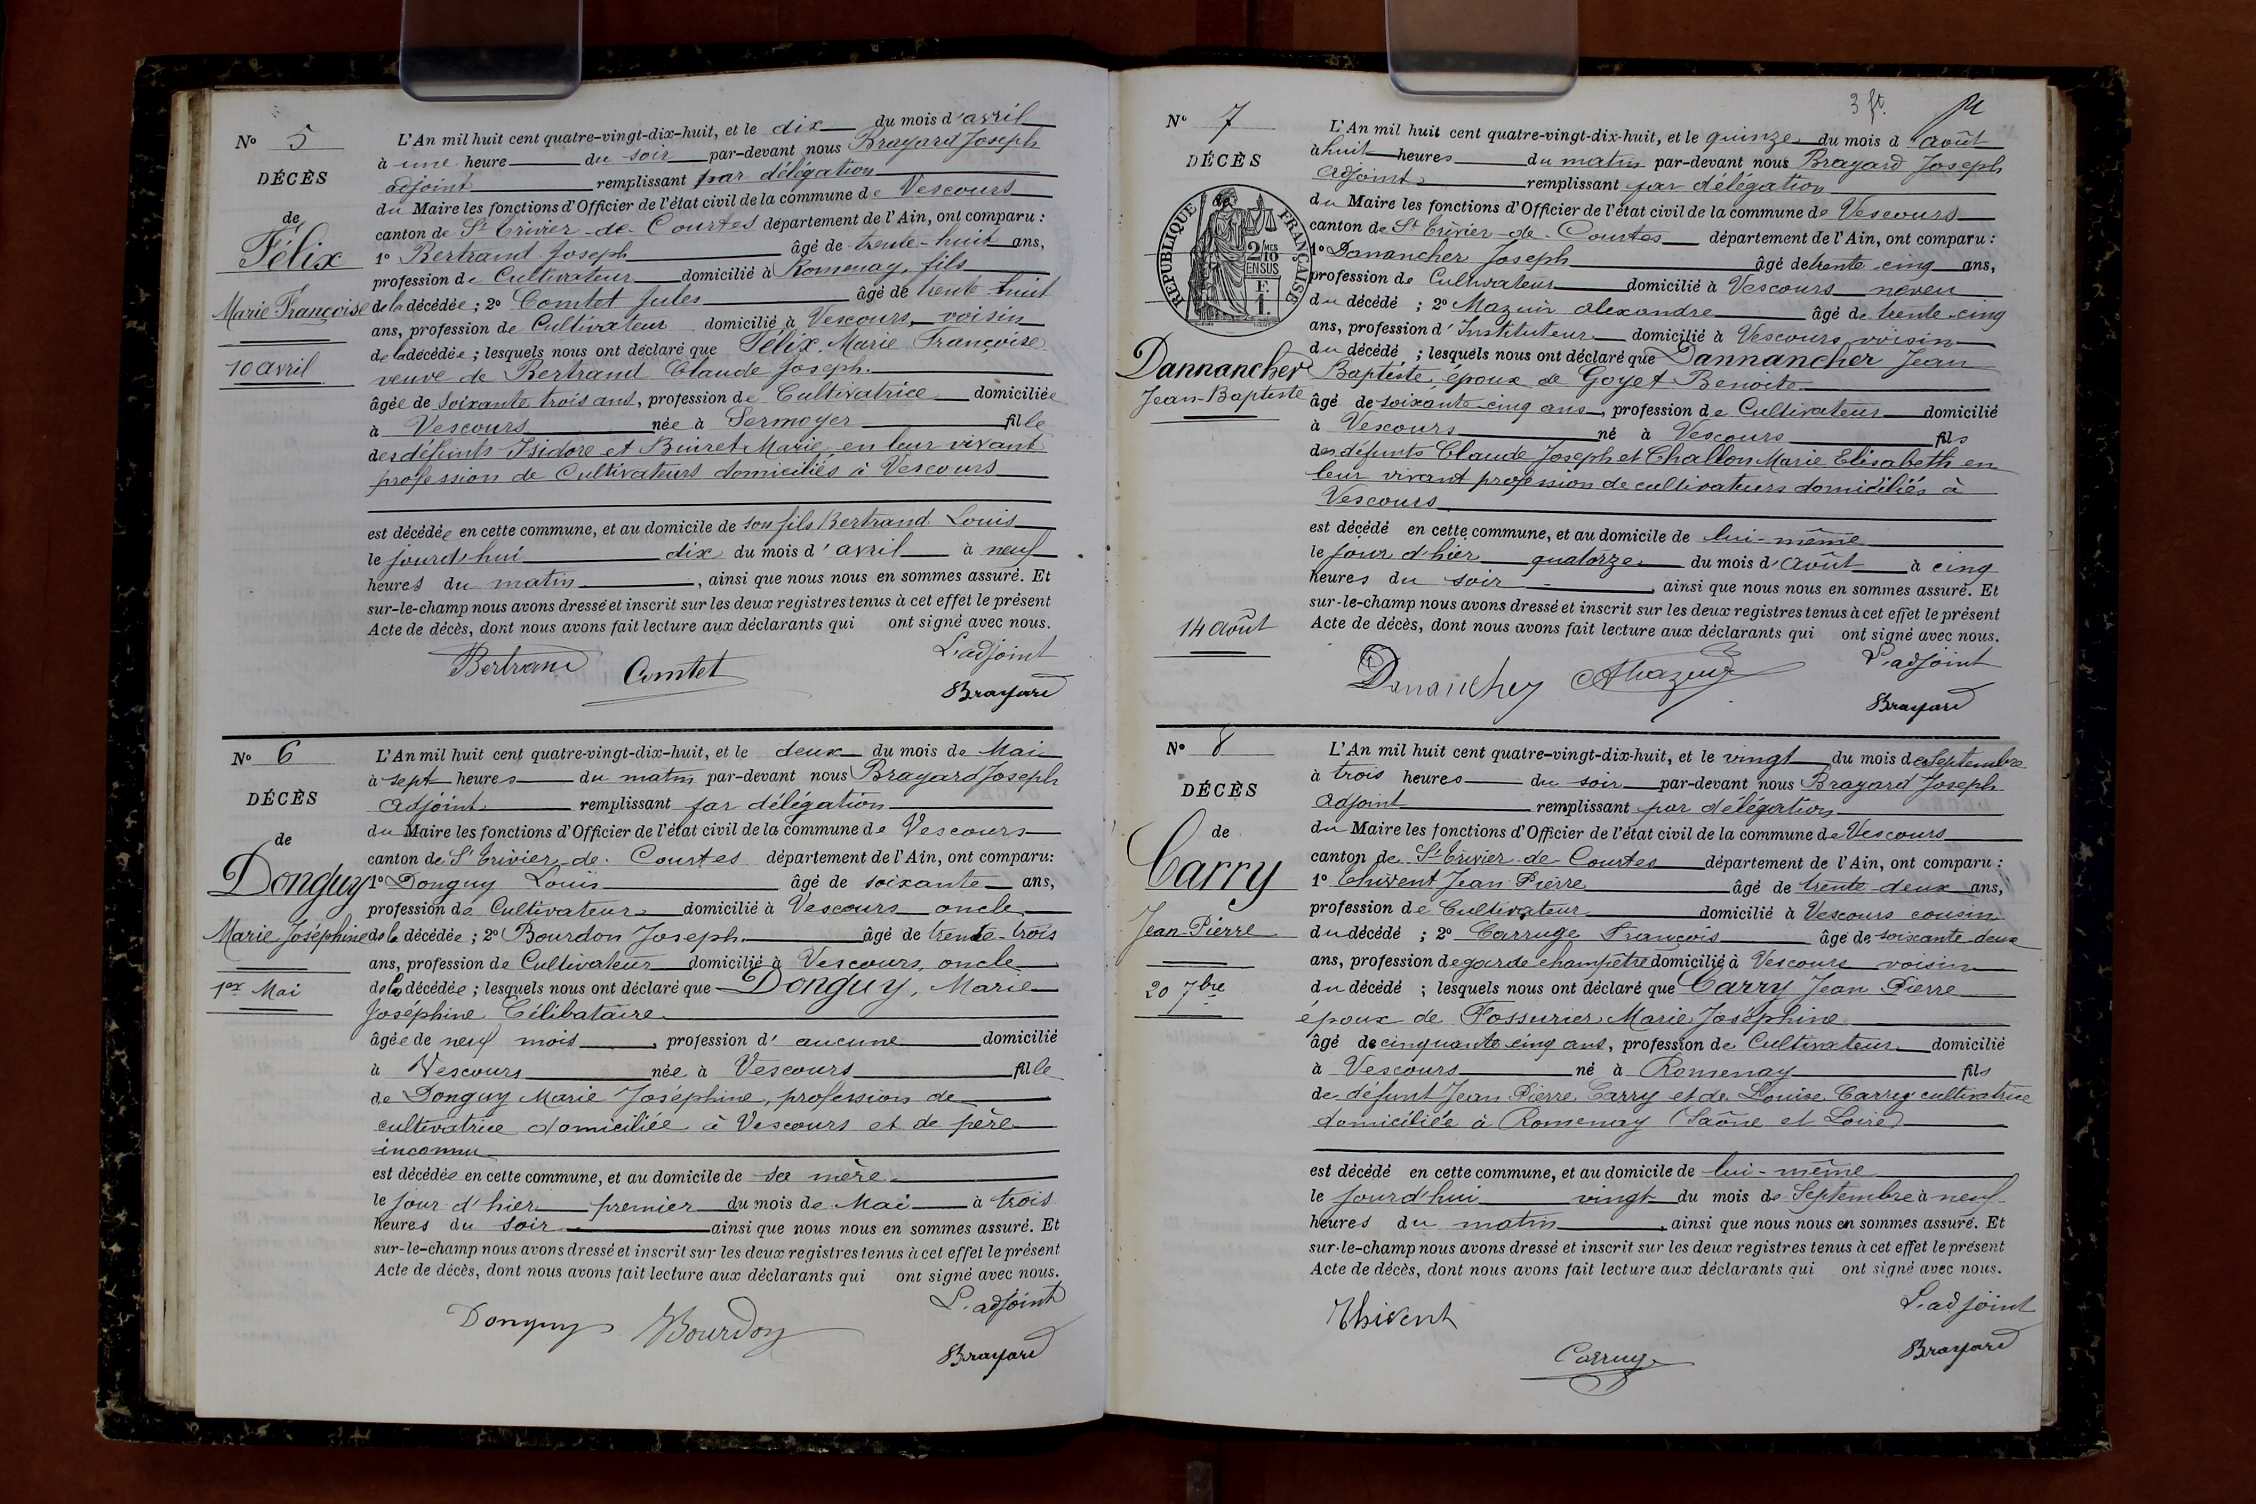 No 5
DÉCÈS
de
Félix
Marie Françoise
10 avril
L'An mil huit cent quatre-vingt-dix-huit, et le dix du mois d'avril
à une heure du soir par-devant nous Brayard Joseph
adjoint remplissant par délégation
du Maire les fonctions d'Officier de l'état civil de la commune de Vescours
canton de St Trivier-de-Courtes département de l'Ain, ont comparu :
1o Bertrand Joseph âgé de trente-huit ans,
profession de Cultivateur domicilié à Romenay, fils
de la décédée ; 2o Comtet Jules âgé de trente huit
ans, profession de Cultivateur domicilié à Vescours, voisin
de la décédée ; lesquels nous ont déclaré que Félix, Marie Françoise
veuve de Bertrand Claude Joseph.
âgée de soixante trois ans, profession de Cultivatrice domiciliée
à Vescours née à Sermoyer fille
des défunts Isidore et Buiret Marie, en leur vivant
profession de Cultivateurs domiciliés à Vescours
est décédée en cette commune, et au domicile de son fils Bertrand Louis
le jourd'hui dix du mois d'avril à neuf
heures du matin, ainsi que nous nous en sommes assuré. Et
sur-le-champ nous avons dressé et inscrit sur les deux registres tenus à cet effet le présent
Acte de décès, dont nous avons fait lecture aux déclarants qui ont signé avec nous.
L'adjoint
Bertrand Comtet
Brayard
No 6
DÉCÈS
de
Donguy
Marie Joséphine
1er Mai
L'An mil huit cent quatre-vingt-dix-huit, et le deux du mois de Mai
à sept heures du matin par-devant nous Brayard Joseph
adjoint remplissant par délégation
du Maire les fonctions d'Officier de l'état civil de la commune de Vescours
canton de St Trivier-de-Courtes département de l'Ain, ont comparu:
1o Donguy Louis âgé de soixante ans,
profession de Cultivateur domicilié à Vescours oncle
de la décédée ; 2o Bourdon Joseph âgé de trente-trois
ans, profession de Cultivateur domicilié à Vescours, oncle
de la décédée ; lesquels nous ont déclaré que Donguy, Marie
Joséphine Célibataire
âgée de neuf mois, profession d'aucune domicilié
à Vescours née à Vescours fille
de Donguy Marie Joséphine, profession de
cultivatrice domiciliée à Vescours et de père
inconnu
est décédée en cette commune, et au domicile de sa mère
le jour d'hier premier du mois de Mai à trois
heures du soir ainsi que nous nous en sommes assuré. Et
sur-le-champ nous avons dressé et inscrit sur les deux registres tenus à cet effet le présent
Acte de décès, dont nous avons fait lecture aux déclarants qui ont signé avec nous.
L'adjoint
Donguy Bourdon
Brayard
3 ft.
No 7
DÉCÈS
RÉPUBLIQUE FRANÇAISE
2/10 MES
EN SUS
F.
1.
Dannancher
Jean-Baptiste
14 août
L'An mil huit cent quatre-vingt-dix-huit, et le quinze du mois d'août
à huit heures du matin par-devant nous Brayard Joseph
adjoint remplissant par délégation
du Maire les fonctions d'Officier de l'état civil de la commune de Vescours
canton de St Trivier-de-Courtes département de l'Ain, ont comparu :
1o Danancher Joseph âgé de trente cinq ans,
profession de Cultivateur domicilié à Vescours neveu
du décédé ; 2o Mazuir alexandre âgé de trente cinq
ans, profession d'Instituteur domicilié à Vescours voisin
du décédé ; lesquels nous ont déclaré que Dannancher Jean
Baptiste, époux de Goyet Benoite
âgé de soixante cinq ans, profession de Cultivateur domicilié
à Vescours né à Vescours fils
des défunts Claude Joseph et Challon Marie Elisabeth en
leur vivant profession de cultivateurs domiciliés à
Vescours
est décédé en cette commune, et au domicile de lui-même
le jour d'hier quatorze du mois d'août à cinq
heures du soir, ainsi que nous nous en sommes assuré. Et
sur-le-champ nous avons dressé et inscrit sur les deux registres tenus à cet effet le présent
Acte de décès, dont nous avons fait lecture aux déclarants qui ont signé avec nous.
L'adjoint
Dananche AMazuir
Brayard
No 8
DÉCÈS
de
Carry
Jean Pierre
20 7bre
L'An mil huit cent quatre-vingt-dix-huit, et le vingt du mois de Septembre
à trois heures du soir par-devant nous Brayard Joseph
adjoint remplissant par délégation
du Maire les fonctions d'Officier de l'état civil de la commune de Vescours
canton de St Trivier-de-Courtes département de l'Ain, ont comparu :
1o Thivent Jean Pierre âgé de trente-deux ans,
profession de Cultivateur domicilié à Vescours cousin
du décédé ; 2o Carruge François âgé de soixante deux
ans, profession de garde champêtre domicilié à Vescours voisin
du décédé ; lesquels nous ont déclaré que Carry Jean Pierre
époux de Fossurier Marie Joséphine
âgé de cinquante cinq ans, profession de Cultivateur domicilié
à Vescours né à Romenay fils
de défunt Jean Pierre Carry et de Louise Carry cultivatrice
domiciliée à Romenay (Saône et Loire)
est décédé en cette commune, et au domicile de lui-même
le jourd'hui vingt du mois de Septembre à neuf
heures du matin, ainsi que nous nous en sommes assuré. Et
sur-le-champ nous avons dressé et inscrit sur les deux registres tenus à cet effet le présent
Acte de décès, dont nous avons fait lecture aux déclarants qui ont signé avec nous.
L'adjoint
Thivent
Carruge
Brayard